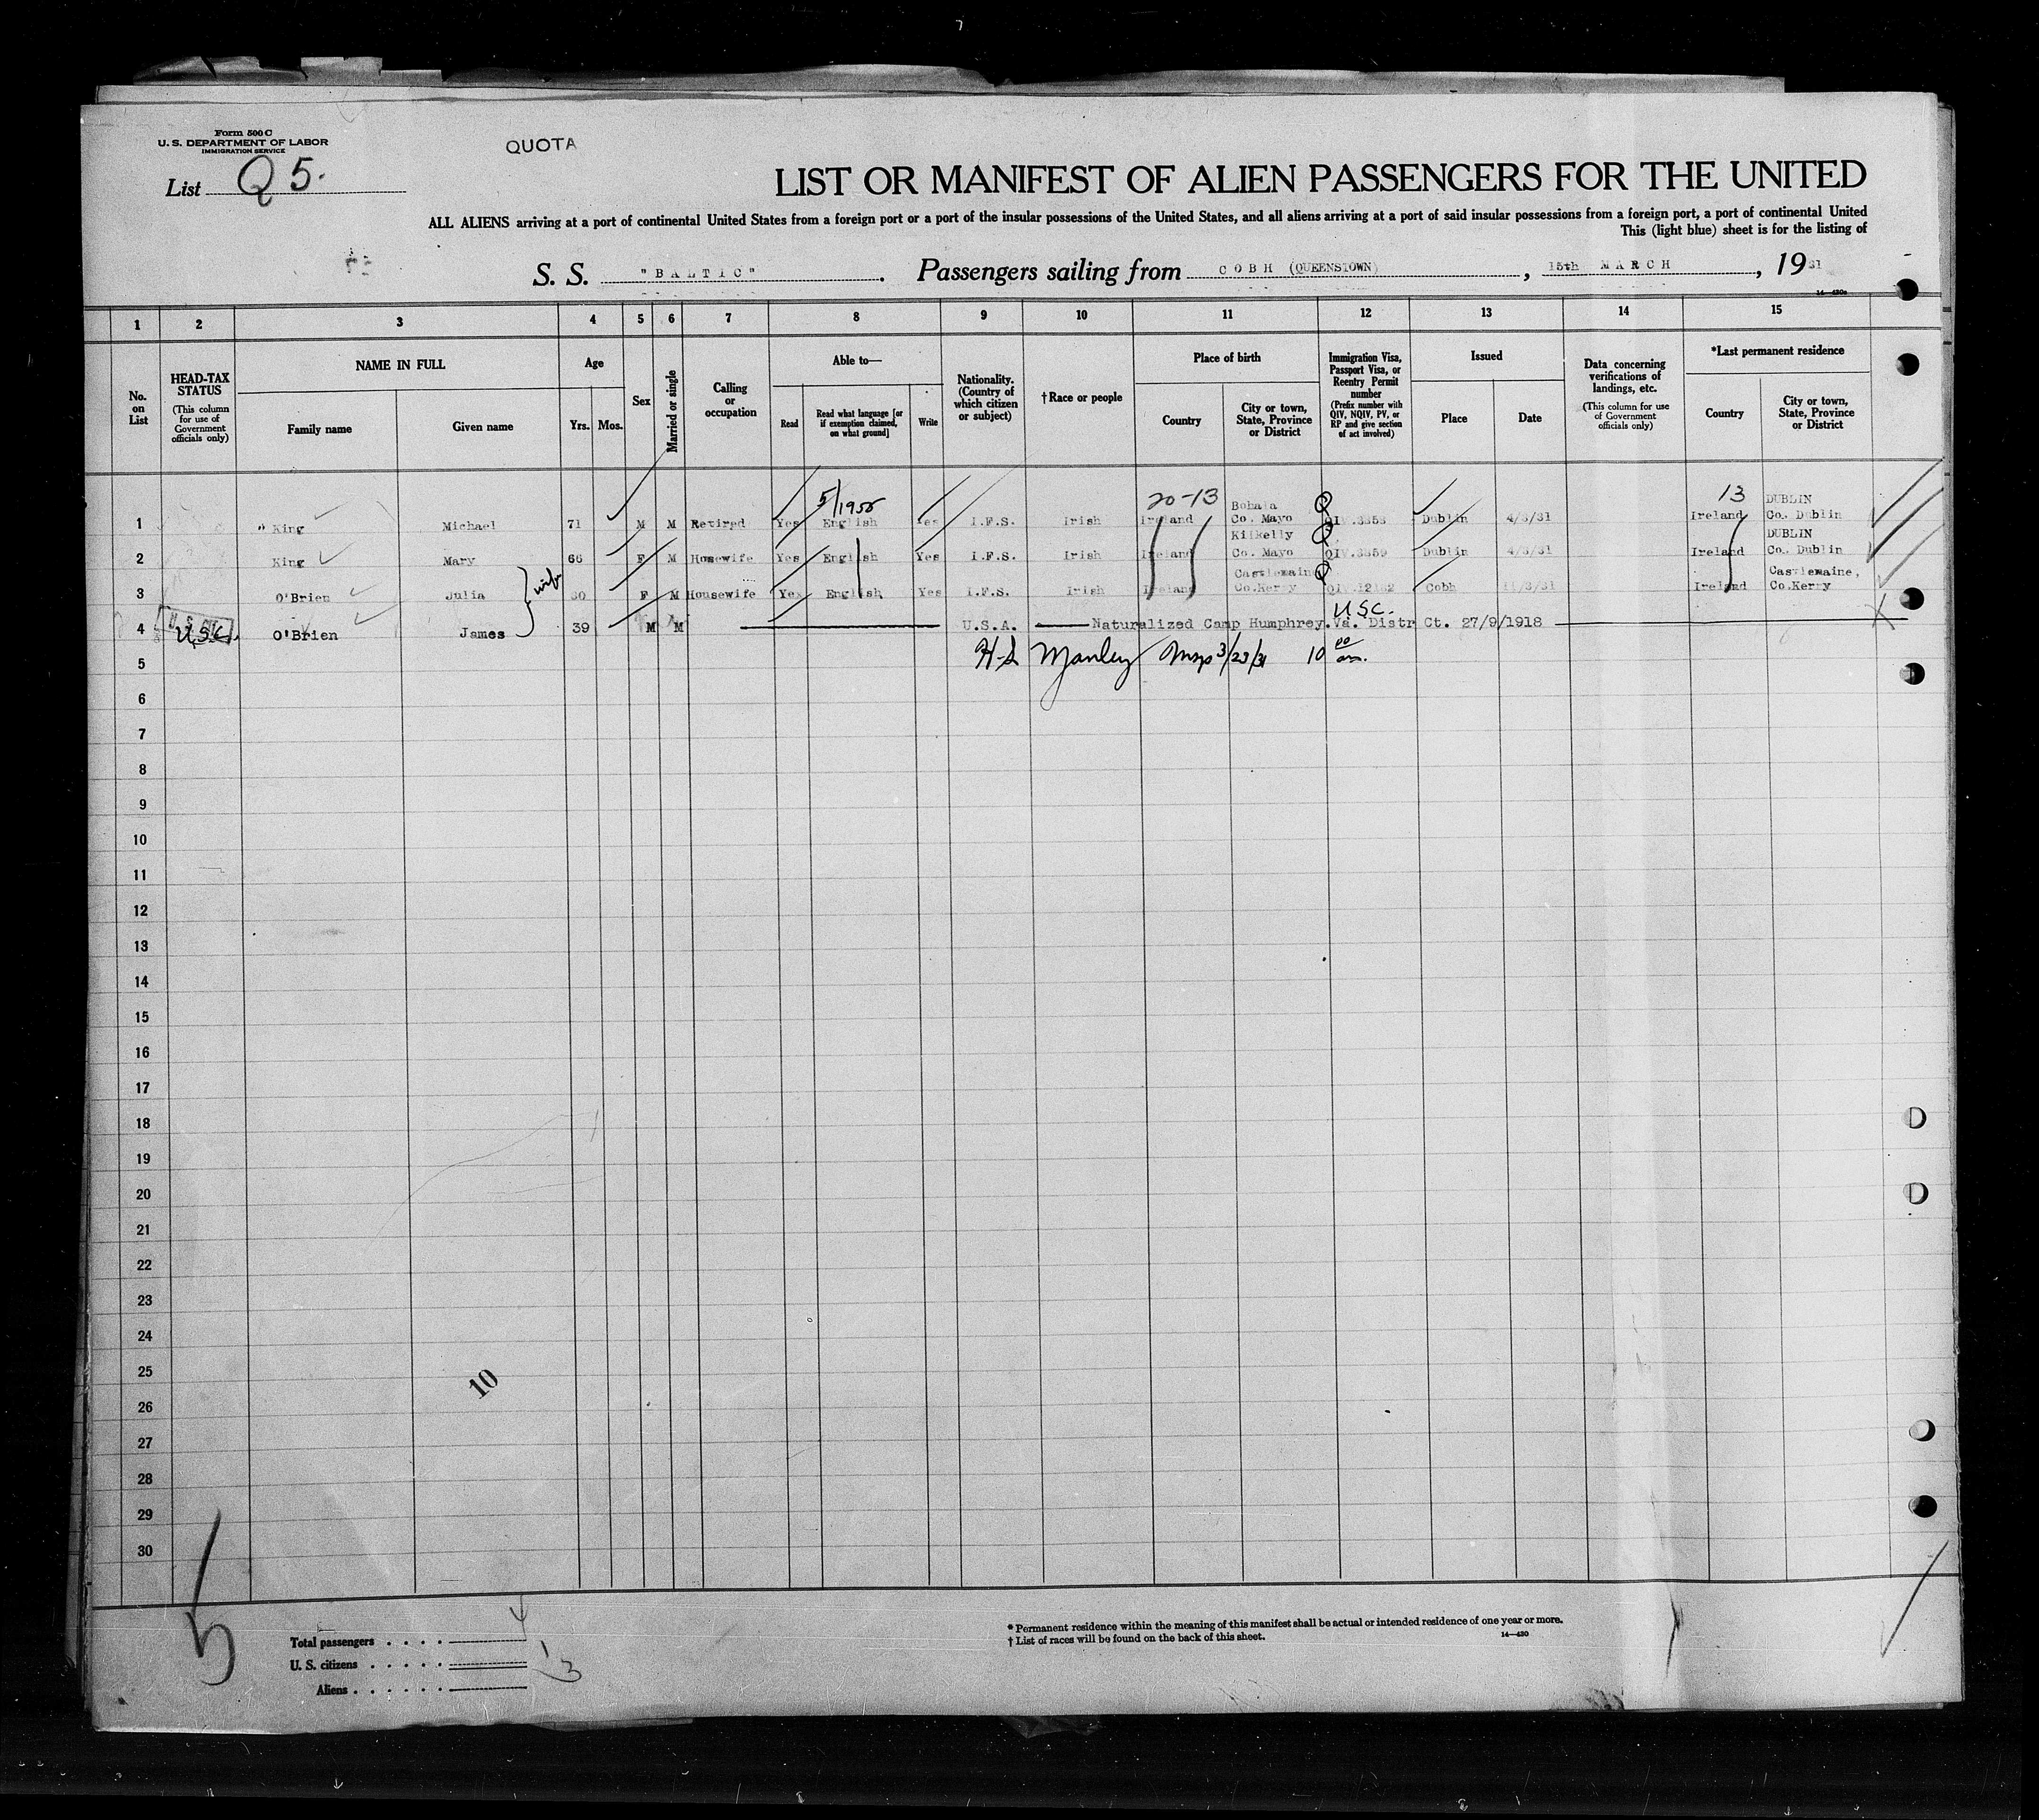 Form 500 C
U. S. DEPARTMENT OF LABOR
IMMIGRATION SERVICE
QUOTA
List Q 5.
LIST OR MANIFEST OF ALIEN PASSENGERS FOR THE UNITED
ALL ALIENS arriving at a port of continental United States from a foreign port or a port of the insular possessions of the United States, and all aliens arriving at a port of said insular possessions from a foreign port, a port of continental United
This (light blue) sheet is for the listing of
S. S. "BALTIC". Passengers sailing from COBH (QUEENSTOWN), 15th MARCH, 1931
14—430a
1 2 3 4 5 6 7 8 9 10 11 12 13 14 15
No. on List
HEAD-TAX STATUS (This column for use of Government officials only)
NAME IN FULL
Family name
Given name
Age
Yrs. Mos.
Sex
Married or single
Calling or occupation
Able to—
Read
Read what language [or if exemption claimed, on what ground]
Write
Nationality. (Country of which citizen or subject)
†Race or people
Place of birth
Country
City or town, State, Province or District
Immigration Visa, Passport Visa, or Reentry Permit number (Prefix number with QIV, NQIV, PV, or RP and give section of act involved)
Issued
Place
Date
Data concerning verifications of landings, etc. (This column for use of Government officials only)
*Last permanent residence
Country
City or town, State, Province or District
20-13 Bohala Q 13 DUBLIN
1 King Michael 71 M M Retired Yes English Yes I.F.S. Irish Ireland Co. Mayo Dublin 4/3/31 Ireland Co. Dublin
Kilkelly Q DUBLIN
2 King Mary 66 F M Housewife Yes English Yes I.F.S. Irish Ireland Co. Mayo QIV.3359 Dublin 4/3/31 Ireland Co. Dublin
Castlemaine Q Castlemaine,
3 O'Brien Julia wife 30 F M Housewife Yes English Yes I.F.S. Irish Ireland Co.Kerry Cobh 11/3/31 Ireland Co.Kerry
USC.
4 USC. O'Brien James 39 M M U.S.A. Naturalized Camp Humphrey.Va. Distr Ct. 27/9/1918
5 Manley 3/23/31 10 00 am.
6
7
8
9
10
11
12
13
14
15
16
17
18
19
20
21
22
23
24
25
10
26
27
28
29
30
5
Total passengers . . . . 4
U. S. citizens . . . . . 1
Aliens . . . . . . 3
* Permanent residence within the meaning of this manifest shall be actual or intended residence of one year or more.
† List of races will be found on the back of this sheet.
14—430